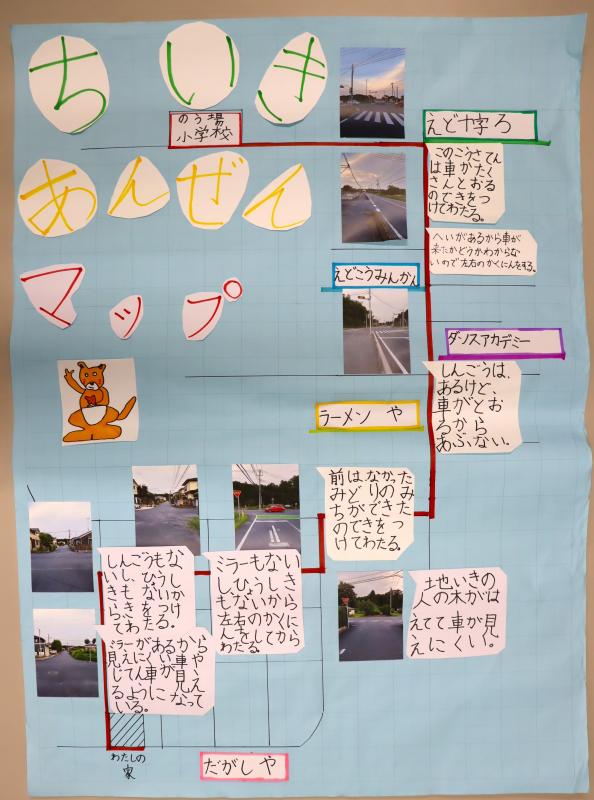 ちいき
あんぜん
マップ
のう場
小学校
えど十字ろ
このこうさてん
は車がたく
さんとおる
のできをつ
けてわたる。
へいがあるから車が
来たかどうかわからな
いので左右のかくにんをする。
えどこうみんかん
ダンスアカデミー
しんごうは、
あるけど、
車がとお
るから
あぶない。
ラーメンや
前はなかった
みどりのみ
ちができた
のできをつ
けてわたる。
しんごうもな
いし、ひょうし
きもないか
らきをつけ
てわたる。
ミラーもない
しひょうしき
もないから
左右のかくに
んをしてから
わたる。
地いきの
人の木がは
えてて車が見
えにくい。
ミラーがあるから
見えにくい車や
じてん車が見え
るようになって
いる。
わたしの
家
だがしや